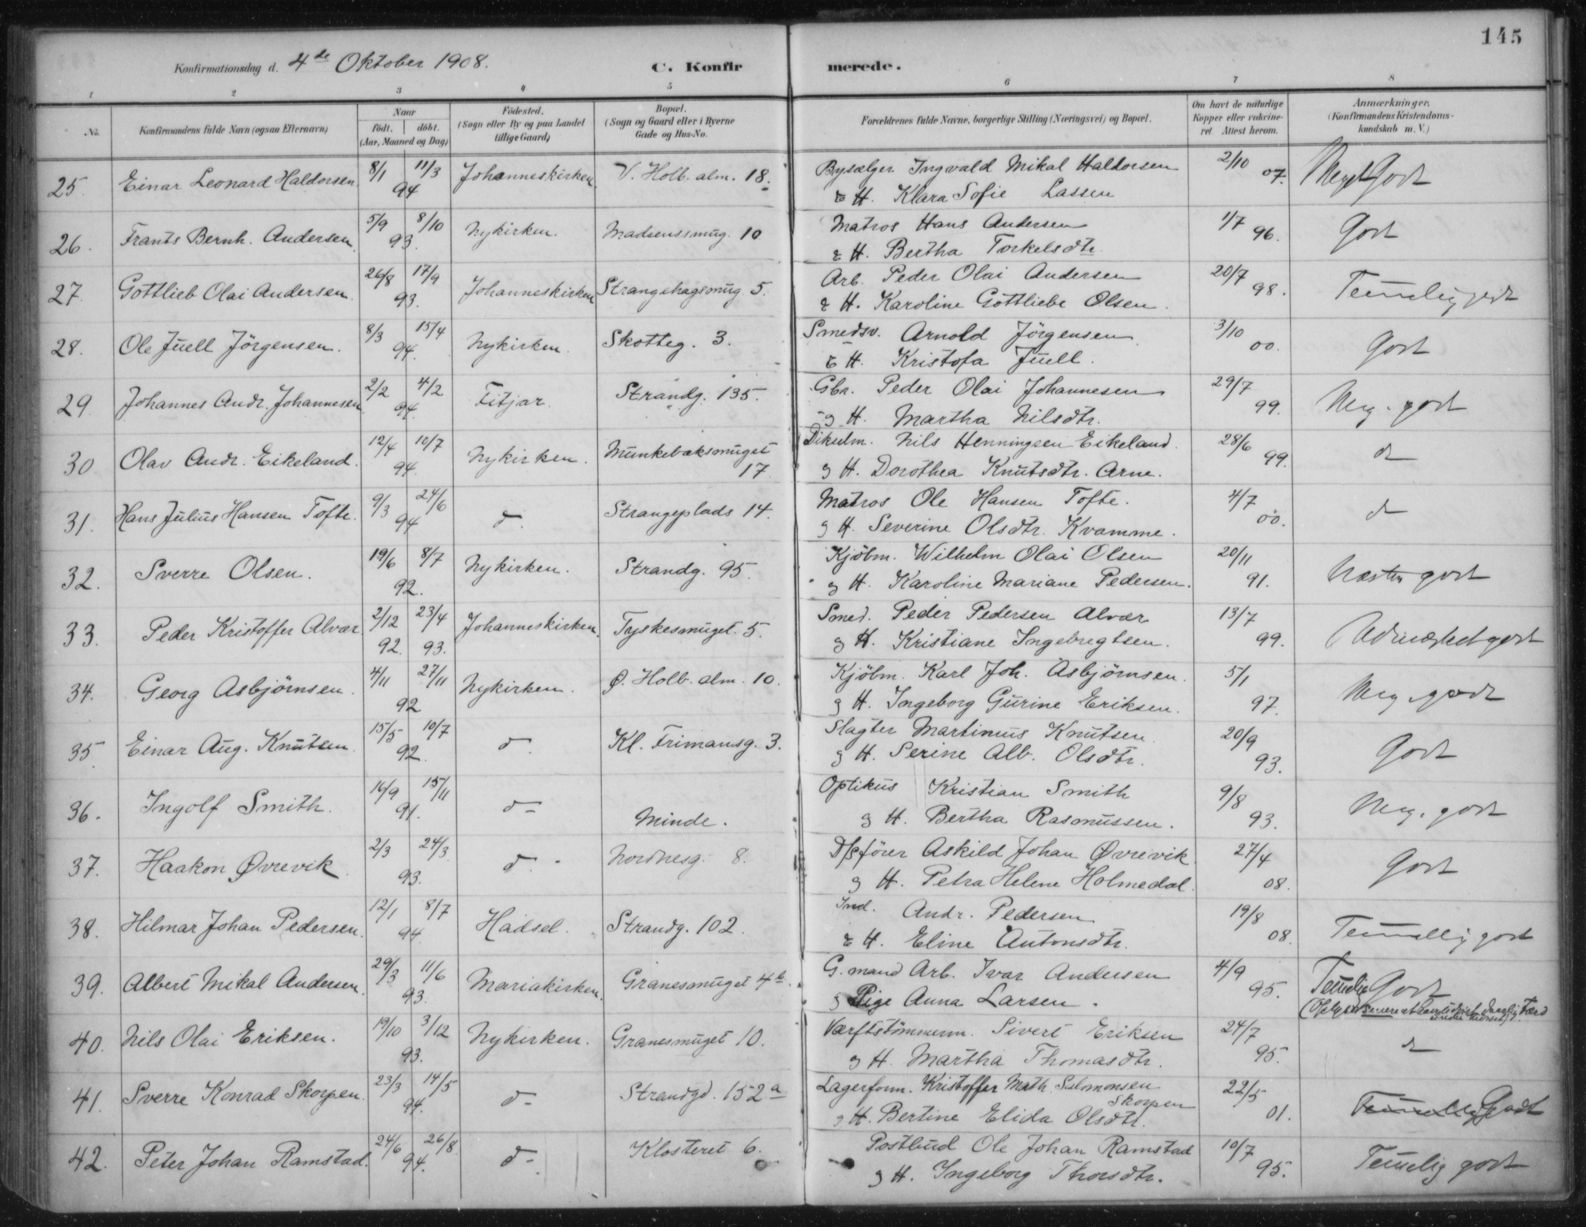 145
Konfirmationsdag d. 4de Oktober 1908.
C. Konfir merede.
1 2 3 4 5 6 7 8
No. Konfirmandens fulde Navn (ogsaa Efternavn) Naar født. døbt. (Aar, Maaned og Dag) Fødested. (Sogn eller By og paa Landet tillige Gaard) Bopæl. (Sogn og Gaard eller i Byerne Gade og Hus-No. Forældrenes fulde Navne, borgerlige Stilling (Næringsvei) og Bopæl. Om havt de naturlige Kopper eller vaksineret. Attest herom. Anmærkninger. (Konfirmandens Kristendomskundskab m. V.)
25. Einar Leonard Haldorsen 8/1 11/3 94 Johanneskirken V. Holb. alm. 18. Bysælger Ingvald Mikal Haldorsen 2/10 07. Meget Godt
& H. Klara Sofie Lassen
26. Frants Bernh. Andersen 5/9 8/10 93. Nykirken. Madsenssmug. 10 Matros Hans Andersen 1/7 96. Godt
& H. Bertha Torkelsdtr.
27. Gottlieb Olai Andersen. 26/8 17/9 93. Johanneskirken Strangehagsmug 5. Arb. Peder Olai Andersen 20/7 98. Temmelig godt
& H. Karoline Gottliebe Olsen.
28. Ole Juell Jörgensen. 8/3 15/4 94. Nykirken. Skotteg. 3. Smedsv. Arnold Jörgensen 3/10 00. Godt
& H. Kristofa Juell.
29. Johannes Andr. Johannesen 2/2 4/2 94. Fitjar. Strandg. 135. Gbr. Peder Olai Johannesen 29/7 99. Meg. godt
g H. Martha Nilsdtr.
30. Olav Andr. Eikeland. 12/4 10/7 94. Nykirken. Munkebæksmuget 17. Nils Henningsen Eikeland. 28/6 99. d
g H. Dorothea Knutsdtr. Arne.
31. Hans Julius Hansen Tofte. 9/3 24/6 94 d. Strangeplads 14. Matros Ole Hansen Tofte. 4/7 00. d
g H. Severine Olsdtr. Kvamme.
32. Sverre Olsen. 19/6 8/7 92. Nykirken. Strandg. 95. Kjøbm. Wilhelm Olai Olsen 20/11 91. Næsten godt
g H. Karoline Mariane Pedersen.
33. Peder Kristoffer Alvær 2/12 92. 23/4 93. Johanneskirken. Tyskesmuget. 5. Smed. Peder Pedersen Alvær 13/7 99. Udmærket godt
g H. Kristiane Ingebrigtsen.
34. Georg Asbjørnsen. 4/11 27/11 92 Nykirken. Ø. Holb. alm. 10. Kjøbm. Karl Joh. Asbjørnsen. 5/1 97. Meg. godt
g H. Ingeborg Gurine Eriksen.
35. Einar Aug. Knutsen. 15/5 10/7 92. d. Kl. Frimansg. 3. Slagter Martinius Knutsen. 20/9 93. Godt
g H. Serine Alb. Olsdtr.
36. Ingolf Smith. 14/9 15/11 91. d- Minde. Optikus Kristian Smith 9/8 93. Meg. godt
g H. Bertha Rasmussen.
37. Haakon Øvrevik 2/3 24/3 93. d - Nordnesg. 8. D/sfører Askild Johan Øvrevik 27/4 08. Godt
g H. Petra Helene Holmedal.
38. Hilmar Johan Pedersen. 12/1 8/7 94 Hadsel. Strandg. 102. Andr. Pedersen 19/8 08. Temmelig godt
& H. Eline Antonsdtr.
39. Albert Mikal Andersen. 29/3 11/6 93. Mariakirken. Granesmuget 4b. G. mand Arb. Ivar Andersen 4/9 95. Temelig Godt
g Pige Anna Larsen.
40. Nils Olai Eriksen. 19/10 3/12 93. Nykirken. Granesmuget 10. Værftstømmerm. Sivert Eriksen 24/7 95. d
g H. Martha Thomasdtr.
41. Sverre Konrad Skorpen. 23/3 14/5 94. d- Strandgd. 152a Lagerform. Kristoffer Math. Salomonsen Skorpen 22/5 01. Temmelig Godt
g H. Bertine Elida Olsdtr.
42. Peter Johan Ramstad. 24/6 26/8 94. d- Klosteret 6. Postbud Ole Johan Ramstad 10/7 95. Temelig godt
g H. Ingeborg Thorsdtr.